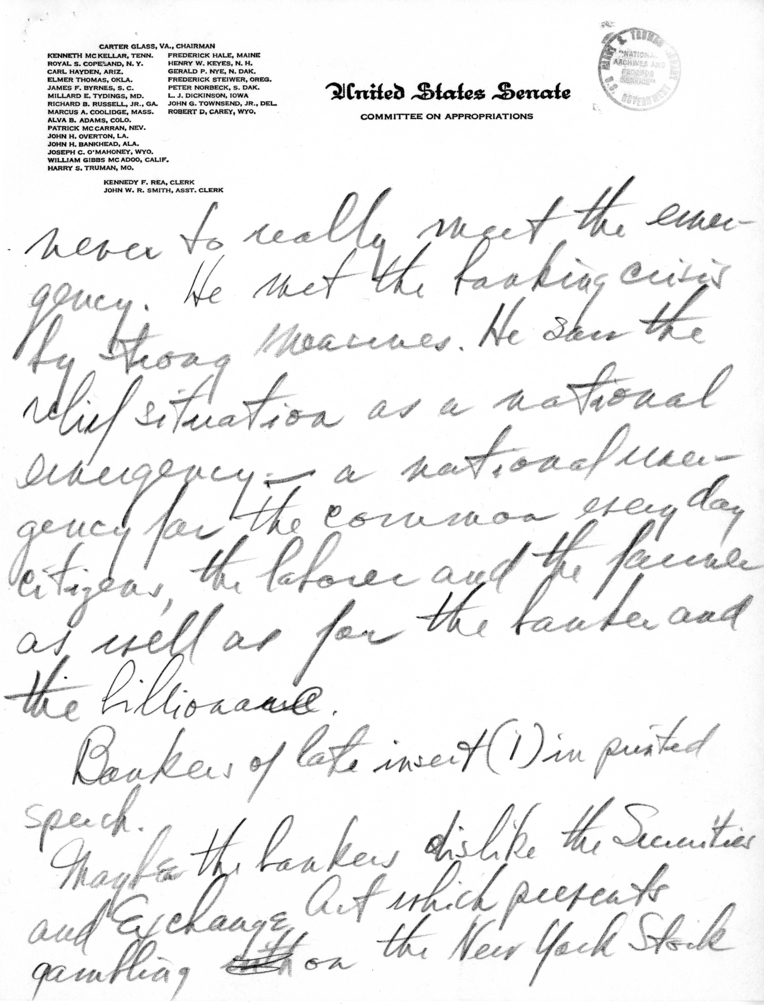 CARTER GLASS, VA., CHAIRMAN
KENNETH MCKELLAR, TENN. FREDERICK HALE, MAINE
ROYAL S. COPELAND, N. Y. HENRY W. KEYES, N. H.
CARL HAYDEN, ARIZ. GERALD P. NYE, N. DAK.
ELMER THOMAS, OKLA. FREDERICK STEIWER, OREG.
JAMES F. BYRNES, S. C. PETER NORBECK, S. DAK.
MILLARD E. TYDINGS, MD. L. J. DICKINSON, IOWA
RICHARD B. RUSSELL, JR., GA. JOHN G. TOWNSEND, JR., DEL.
MARCUS A. COOLIDGE, MASS. ROBERT D. CAREY, WYO.
ALVA B. ADAMS, COLO.
PATRICK MCCARRAN, NEV.
JOHN H. OVERTON, LA.
JOHN H. BANKHEAD, ALA.
JOSEPH C. O'MAHONEY, WYO.
WILLIAM GIBBS MCADOO, CALIF.
HARRY S. TRUMAN, MO.
KENNEDY F. REA, CLERK
JOHN W. R. SMITH, ASST. CLERK
United States Senate
COMMITTEE ON APPROPRIATIONS
HARRY S. TRUMAN LIBRARY
"NATIONAL
ARCHIVES AND
RECORDS
SERVICE"
U.S. GOVERNMENT
never to really meet the emer-
gency. He met the banking crisis
by strong measures. He saw the
relief situation as a national
emergency — a national emer-
gency for the common every day
citizens, the laborer and the farmer
as well as for the banker and
the billionaire.
Bankers of late insert (1) in printed
speech.
Maybe the bankers dislike the Securities
and Exchange Act which prevents
gambling on the New York Stock